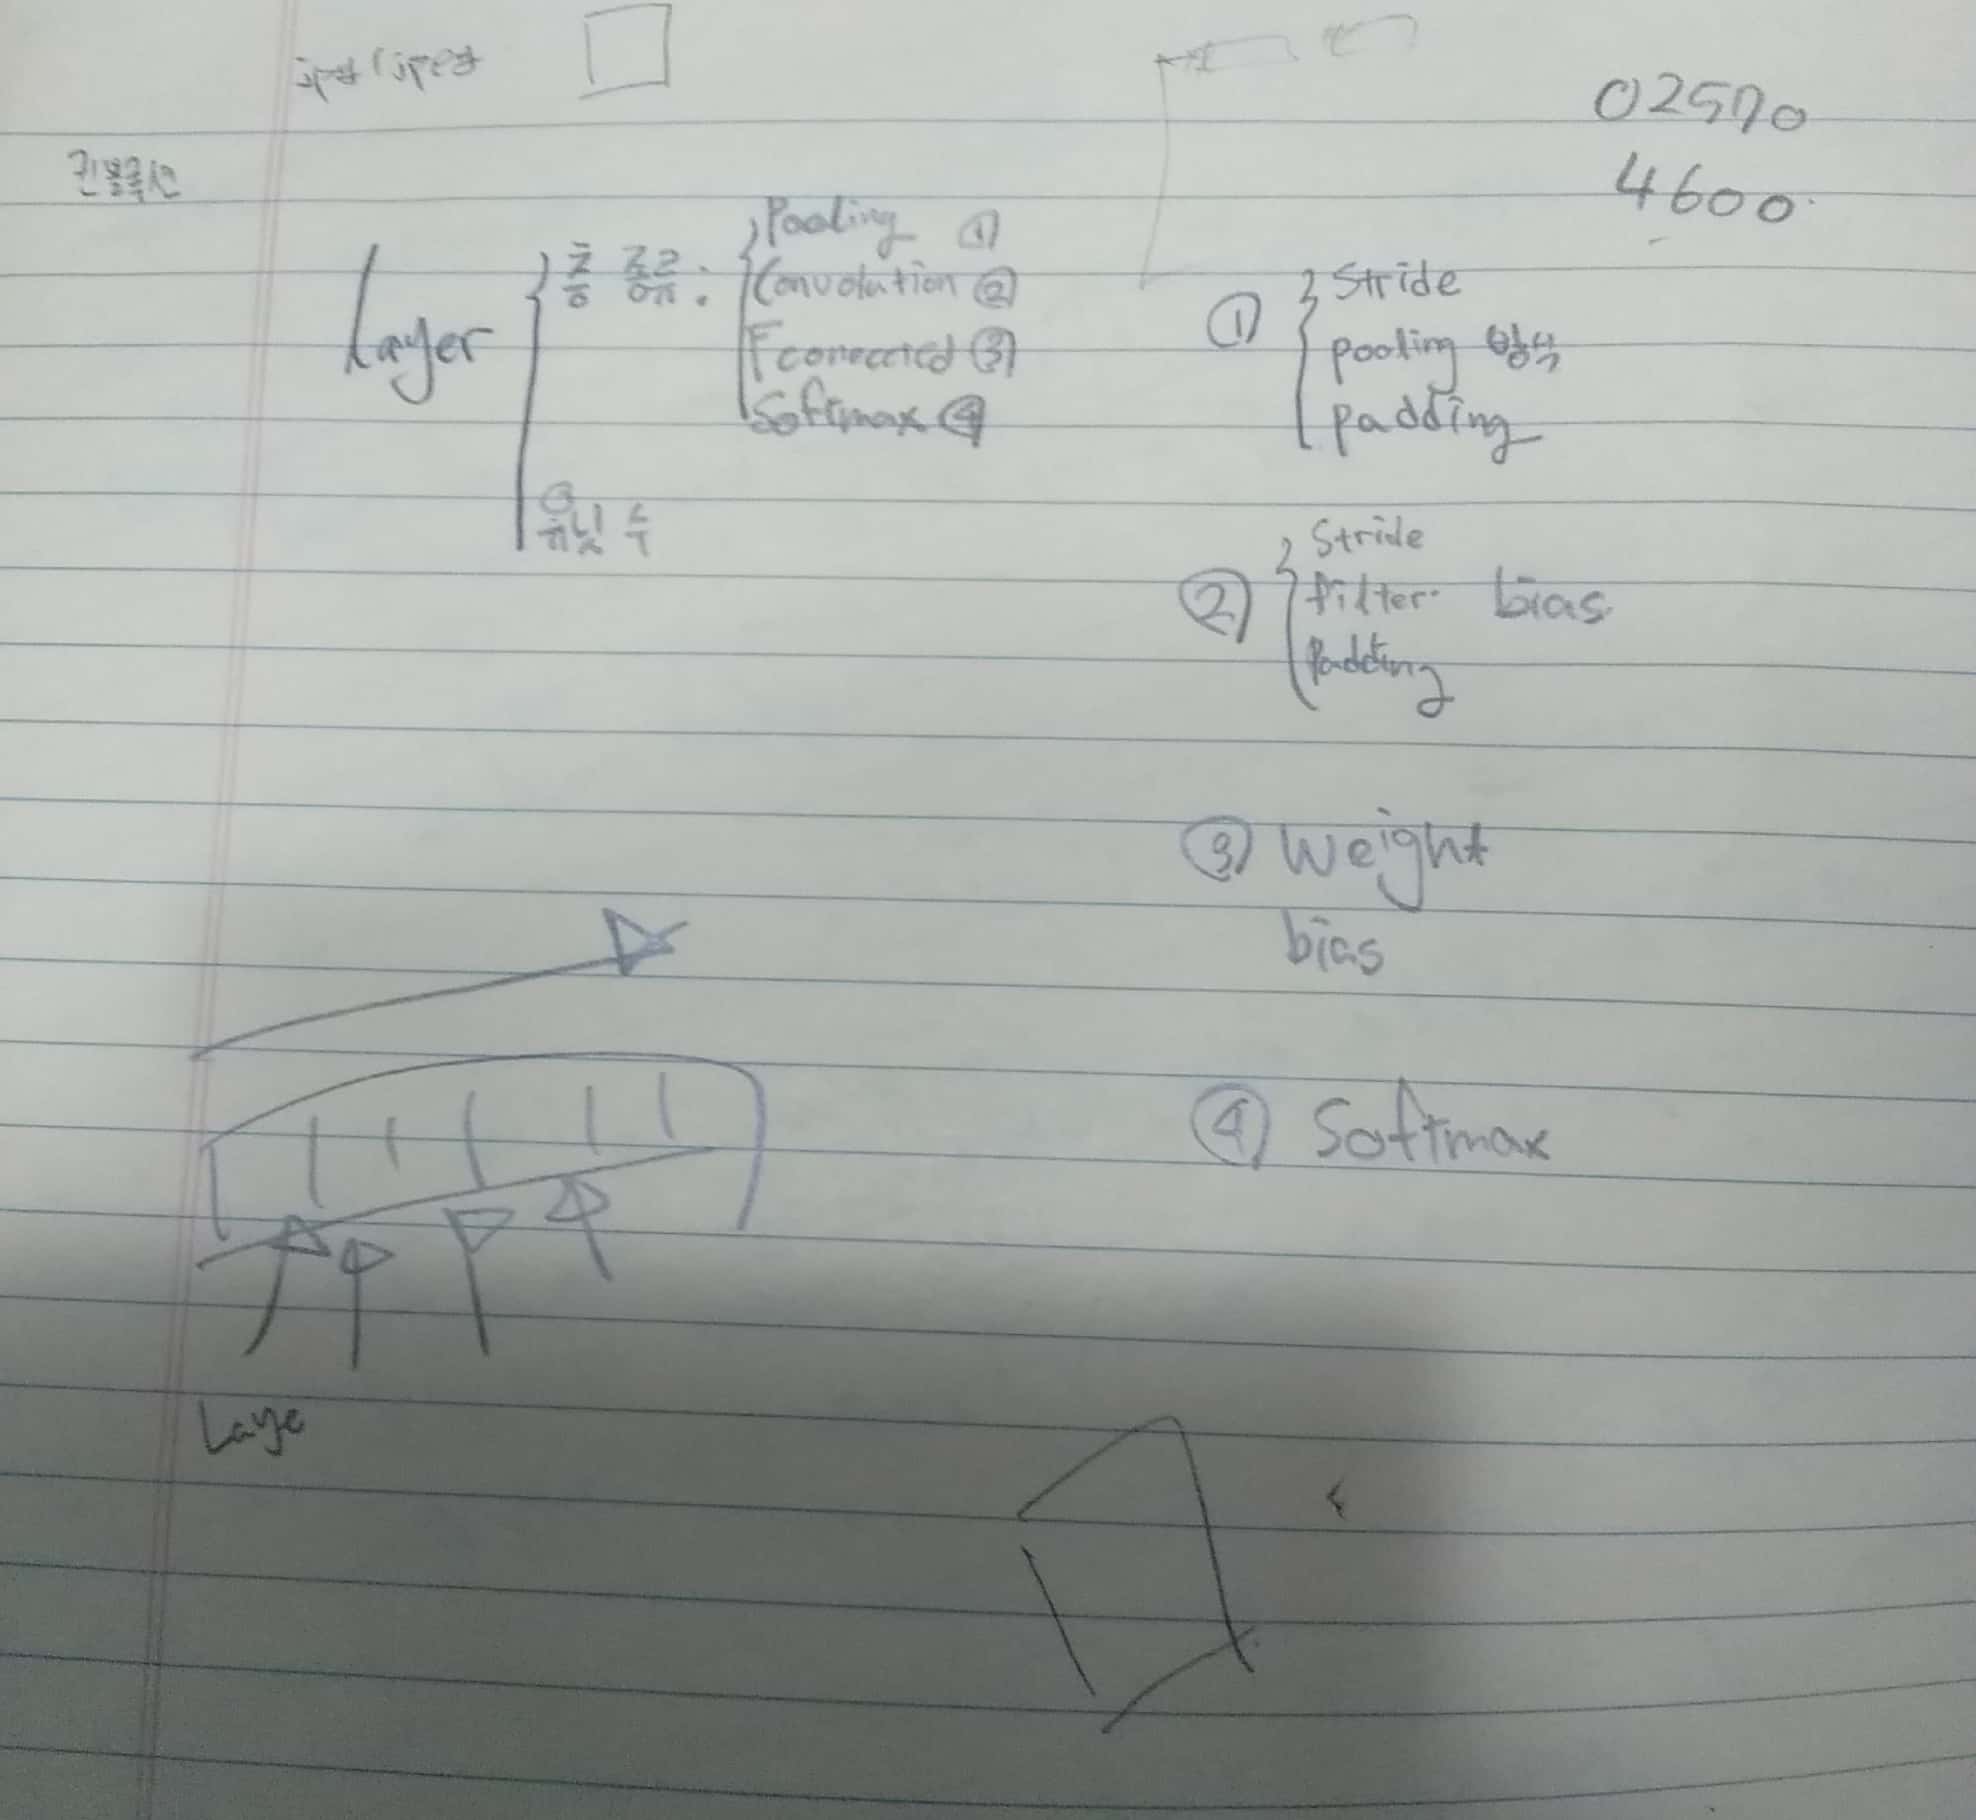 02570
4600
컨볼룩션
Layer
층 종류:
Pooling ①
Convolution ②
F conected ③
Softmax ④
유닛 수
① Stride
pooling 방식
padding
② Stride
filter bias
Padding
③ Weight
bias
④ Softmax
Laye